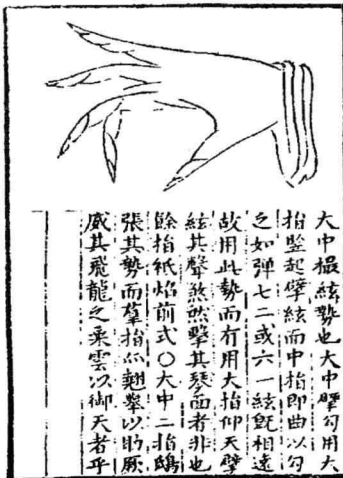 大中撮絃勢也大中擘勾用大
指竪起擘絃而中指即曲以勾
之如弹七二或六一絃既相遠
故用此勢而有用大指仰天擘
絃其聲煞然擊其琴面者非也
餘指紙焰前式〇大中二指鴟
張其勢而羣指尒翹擧以助厥
威其飛龍之乘雲以御天者乎